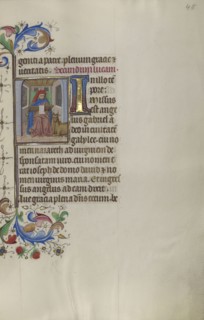 geniti a patre. plenum gratie ⁊
ueritatis. Secundum lucam.
In illo tẽ
pore
missus
est ange
lus gabriel a
deo in ciuitatẽ
galylee. cui no
men nazareth ad uirginem de
sponsatam uiro. cui nomen e
rat ioseph de domo dauid ⁊ no
men uirginis maria. Et ingres
sus angelus ad eam dixit.
Aue gracia plena dñs tecum. be